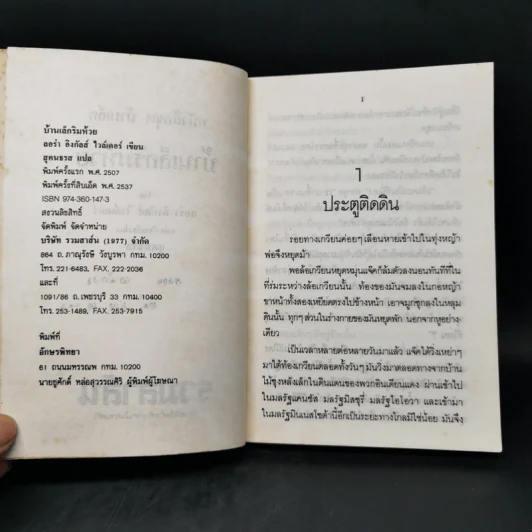 บ้านเล็กริมห้วย
ลอร่า อิงกัลส์ ไวล์เดอร์ เขียน
สุคนธรส แปล
พิมพ์ครั้งแรก พ.ศ. 2507
พิมพ์ครั้งที่สิบเอ็ด พ.ศ. 2537
ISBN 974-360-147-3
สงวนลิขสิทธิ์
จัดพิมพ์ จัดจำหน่าย
บริษัท รวมสาส์น (1977) จำกัด
864 ถ.ภาณุรังษี วังบูรพา กทม. 10200
โทร. 221-6483, FAX. 222-2036
และที่
1091/86 ถ.เพชรบุรี 33 กทม. 10400
โทร. 253-1489, FAX. 253-7915
พิมพ์ที่
อักษรพิทยา
61 ถนนมหรรณพ กทม. 10200
นายชูศักดิ์ หล่อสุวรรณศิริ ผู้พิมพ์ผู้โฆษณา
1
1
ประตูติดดิน
รอยทางเกวียนค่อยๆ เลือนหายเข้าไปในทุ่งหญ้า
พ่อจึงหยุดม้า
พอล้อเกวียนหยุดหมุนแจ๊คก็ล้มตัวลงนอนทันทีที่ใน
ที่ร่มระหว่างล้อเกวียนนั้น ท้องของมันจมลงในกอหญ้า
ขาหน้าทั้งสองเหยียดตรงไปข้างหน้า เอาจมูกซุกลงในหลุม
ดินนั้น ทุกๆ ส่วนในร่างกายของมันหยุดพัก นอกจากหูอย่าง
เดียว
เป็นเวลาหลายต่อหลายวันมาแล้ว แจ๊คได้วิ่งเหย่าๆ
มาใต้ท้องเกวียนตลอดทั้งวันๆ มันวิ่งมาตลอดทางจากบ้าน
ไม้ซุงหลังเล็กในดินแดนของพวกอินเดียนแดง ผ่านเข้าไป
ในมลรัฐแคนซัส มลรัฐมิสซูรี่ มลรัฐไอโอวา และเข้ามา
ในมลรัฐมินเนสโซต้านี้อีกเป็นระยะทางไกลมิใช่น้อย มันจึง